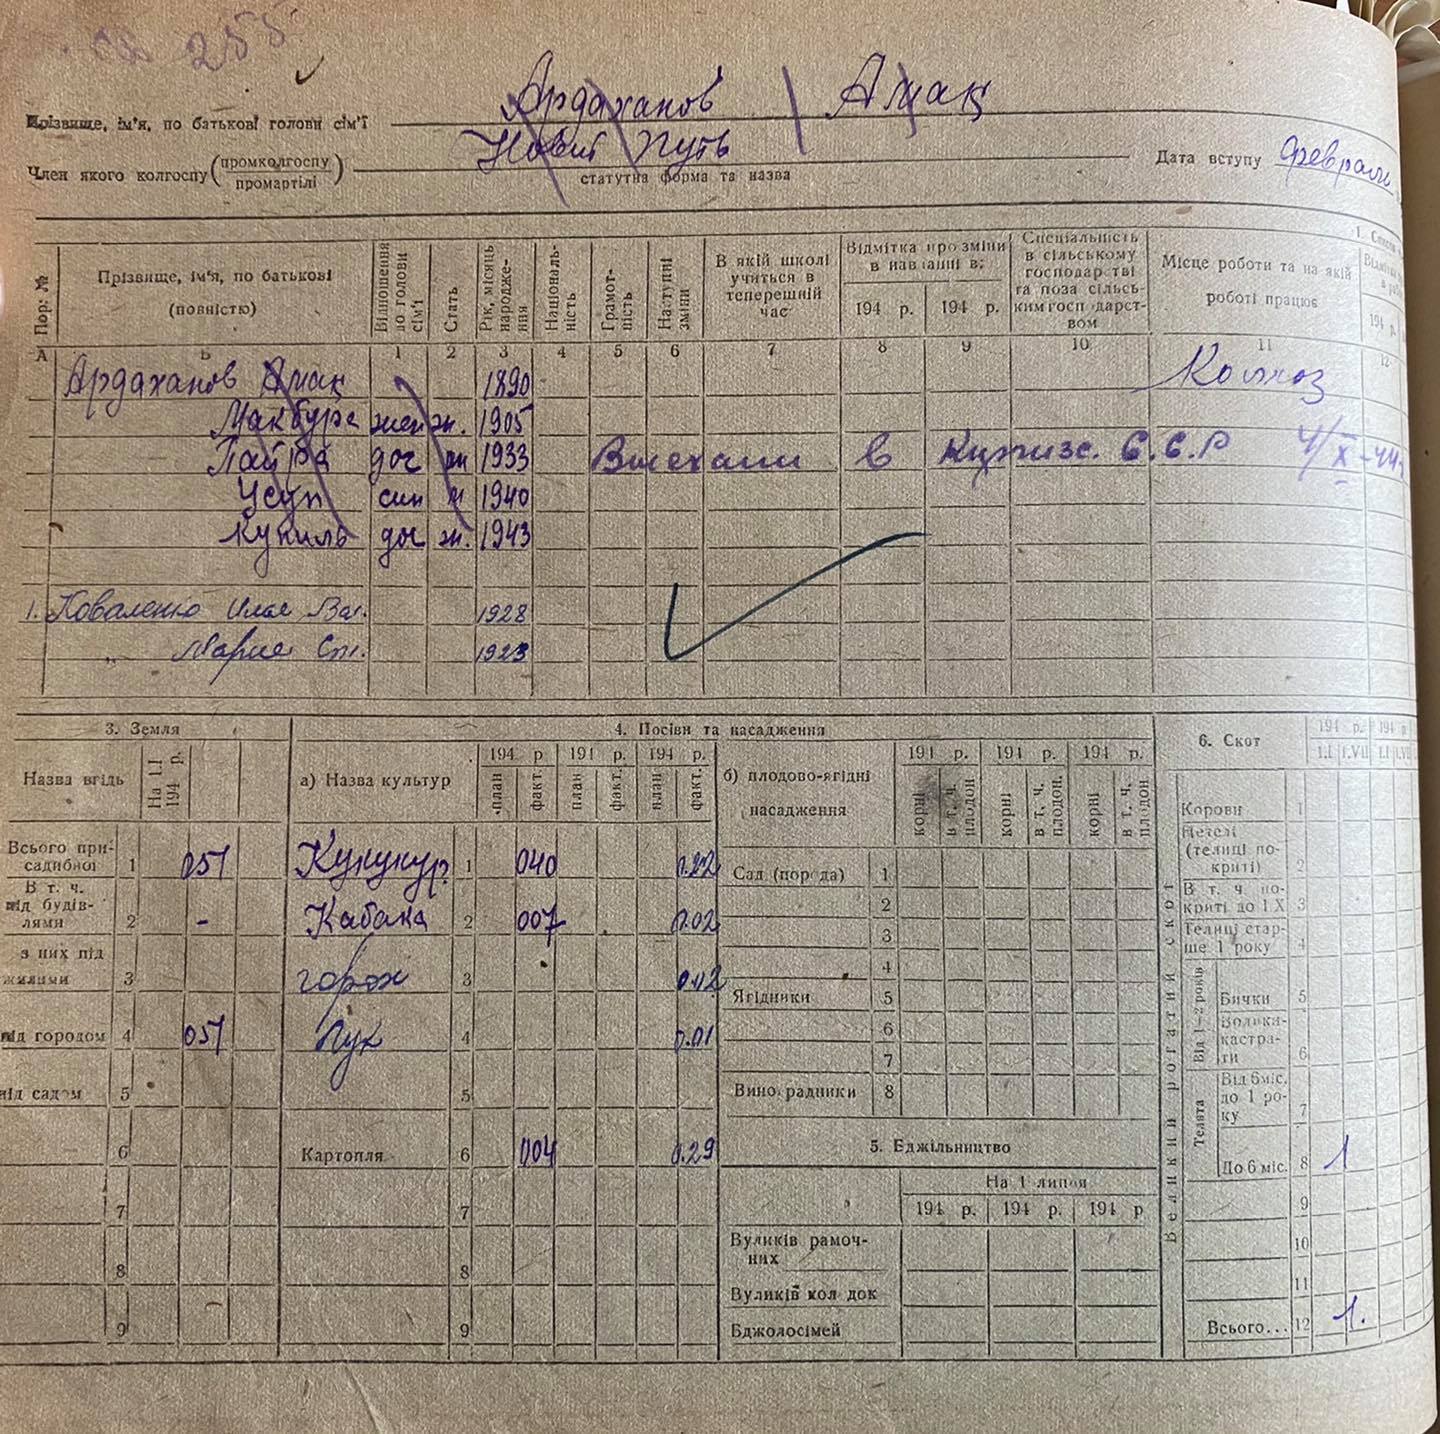 255
Прізвище, ім'я, по батькові голови сім'ї Ардаханов Амак
Член якого колгоспу (промколгоспу / промартілі) Новий Путь Дата вступу Феврали
статутна форма та назва
Пор. №№ Прізвище, ім'я, по батькові (повністю) Відношення до голови сім'ї Стать Рік, місяць народження Національність Грамотність Наступні зміни В якій школі учиться в теперешній час Відмітка про зміни в навчанні в: 194 р. 194 р. Спеціальність в сільському господарстві та поза сільським господарством Місце роботи та на якій роботі працює 194 р.
А Б 1 2 3 4 5 6 7 8 9 10 11 12
Ардаханов Амак 1890 Колхоз
Макбуре жен ж. 1905
доч 1933 в Киргизс. С.С.Р 4/X-44
Усуп син м 1940
Куниль доч ж. 1943
1. Коваленко 1928
" Марие 1923
3. Земля 4. Посіви та насадження 6. Скот 194 р. 194 р.
Назва вгідь На 1.I 194 р. а) Назва культур 194 р 194 р. 194 р. план факт. план факт. план факт. б) плодово-ягідні насадження 194 р. 194 р. 194 р. корні в т. ч. плодон. корні в т. ч. плодон. корні в т. ч. плодон 1.I 1.VII 1.I
Всього присадибної 1 051 Кукукур. 1 040 0.22 Сад (порода) 1
В т. ч. під будівлями 2 - Кабака 2 007 0.02 2
3
з них під жилими 3 горох 3 0.02 4
Ягідники 5
під городом 4 051 Лук 4 0.01 6
7
під садом 5 5 Виноградники 8
6 Картопля 6 004 0.29 5. Бджільництво
7 7 На 1 липня
194 р. 194 р. 194 р
8 8 Вуликів рамочних
Вуликів колодок
9 9 Бджолосімей
Великий рогатий скот
Корови 1
Нетелі (телиці покриті) 2
В т. ч. покриті до 1 X 3
Телиці старше 1 року 4
Від 1—2 років Бички 5
Волики-кастрати 6
Телята Від 6 міс. до 1 року 7
До 6 міс. 8 1
9
10
11
Всього... 12 1.